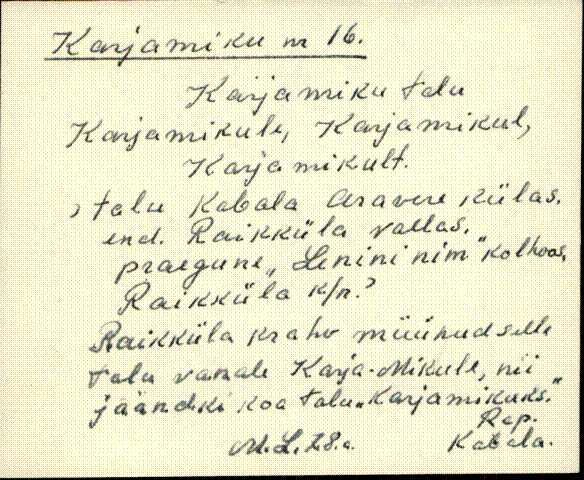 Karjamiku nr 16.
Karjamiku talu
Karjamikule, Karjamikul,
Karjamikult.
, talu Kabala Aravere külas.
end. Raikküla vallas.
praegune „Lenini nim" kolhoos,
Raikküla k/n.?
Raikküla krahv müünud selle
talu vanale Karja-Mikule, nii
jäändki koa talu „Karjamikuks."
Rap.
M.L. 28.a. Kabala.